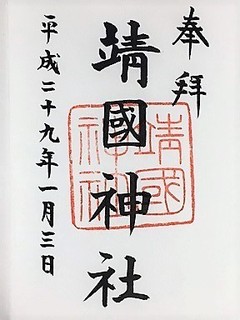 奉拜
靖國神社
平成二十九年一月三日
靖國
神社